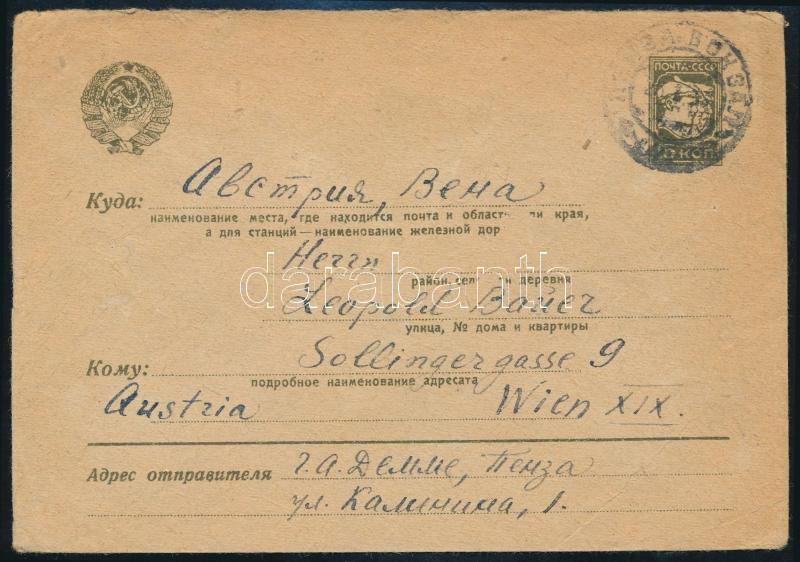 ПОЧТА-СССР
КОП
Куда: Австрия, Вена
наименование места, где находится почта и област
края,
а для станций — наименование железной дор
Herrn
район, деревня
Leopold Bauer
улица, № дома и квартиры
Кому: Sollingergasse 9
подробное наименование адресата
Austria Wien XIX.
Адрес отправителя г.А. Демме, Пенза
ул. Калинина, 1.
darabanth